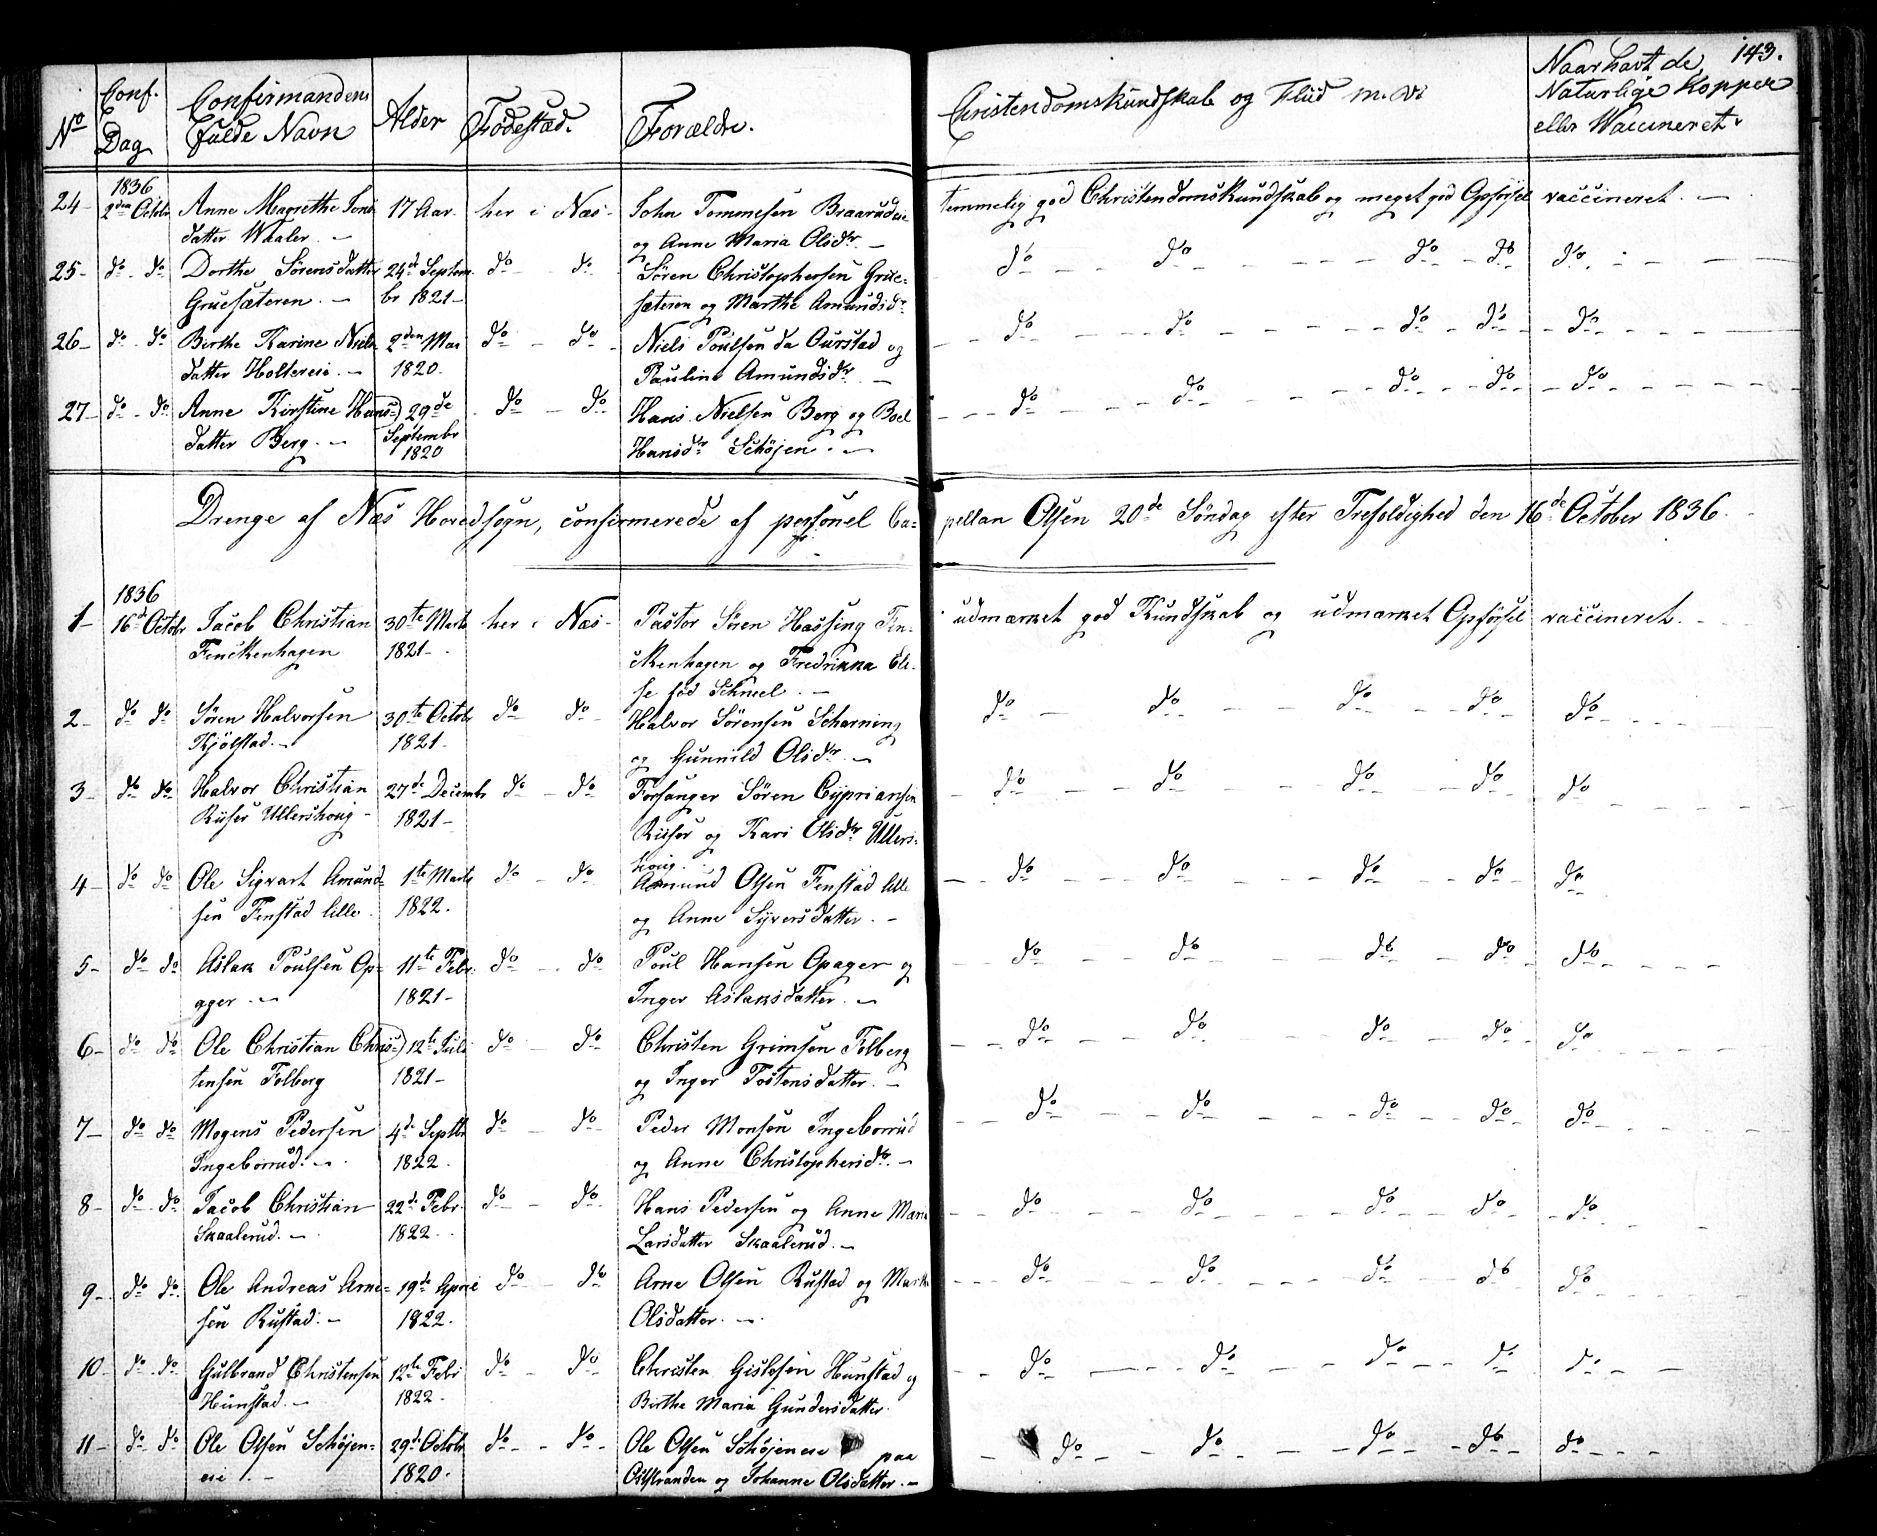 143.
No Conf. Dag Confirmandens fulde Navn Alder Fødestæd. Forældre. Christendomskundskab og Flid m. v. Naar havt de Naturlige Kopper eller Vaccineret.
24 1836 2den Octobr Anne Magrethe Jons 17 Aar. her i Næs John Tommesen Braarudeie temmelig god Christendomskundskab og meget god Opførsel vaccineret.
datter Waaler. og Anne Maria Olsdtr.
25 do do Dorthe Sørensdatter 24de Septem do do Søren Christophersen Grue= do do do do do
Gruesæteren. br 1821 sæteren og Marthe Amundsdr.
26 do do Birthe Karine Niels 2den Mai do do Niels Poulsen da Aurstad og do do do do do
datter Holtereie. 1820. Pauline Amundsdr.
27 do do Anne Kirstine Hans 29de do do Hans Nielsen Berg og Boel do do do do do
datter Berg. Septembr 1820 Hansdr Schøjen.
Drenge af Næs Hovedsogn, confirmerede af personel Ca= pellan Olsen 20de Søndag efter Trefoldighed den 16de October 1836.
1 1836 16de Octobr Jacob Christian 30te Marts her i Næs Pastor Søren Hassing Fin= udmærket god Kundskab og udmærket Opførsel vaccineret.
Finckenhagen 1821 ckenhagen og Fredrikka Eli=
se fød Schnell.
2 do do Søren Halvorsen 30te Octobr do do Halvor Sørensen Scharning do do do do do
Kjølstad. 1821 og Gunnild Olsdr.
3 do do Halvor Christian 27de Decembr do do Forsanger Søren Cypriansen do do do do do
Riiser Ullershoug 1821 Riiser og Kari Olsdr Ullers=
houg.
4 do do Ole Sigvart Amund= 1te Marts do do Amund Olsen Fenstad lille do do do do do
sen Fenstad lille. 1822. og Anne Syversdatter.
5 do do Aslak Poulsen Op= 11te Febr. do do Poul Hansen Opager og do do do do do
ager. 1821 Inger Aslaksdatter.
6 do do Ole Christian Chris= 12te Juli do do Christen Grimsen Folberg do do do do do
tensen Folberg 1821 og Inger Tostensdatter.
7 do do Mogens Pedersen 4de Septbr do do Peder Monsen Ingeborrud do do do do do
Ingeborrud. 1822. og Anne Christophersdr.
8 do do Jacob Christian 22de Febr. do do Hans Pedersen og Anne Marie do do do do do
Skaalerud. 1822. Larsdatter Skaalerud.
9 do do Ole Andreas Arne= 19de April do do Arne Olsen Rustad og Marthe do do do do do
sen Rustad. 1822. Olsdatter.
10 do do Gulbrand Christensen 12te Febr do do Christen Gislesen Hunstad og do do do do do
Hunstad. 1822. Birthe Maria Gundersdatter.
11 do do Ole Olsen Schøjen= 29de Octobr do do Ole Olsen Schøjeneie paa do do do do do
eie. 1820. og Johanne Olsdatter.